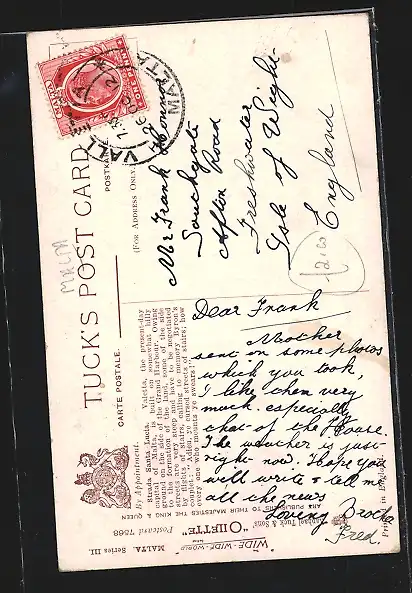 MALTA
ONE PENNY
VALLETTA
MALTA
TUCK'S POST CARD
CARTE POSTALE.
POSTKARTE
(FOR ADDRESS ONLY.)
Mr Frank
Southgate
Afton Road
Freshwater
Isle of Wight
England
MALTA
By Appointment.
Strada Santa Lucia. Valetta, the present-day
capital of Malta, is built on somewhat hilly
ground on the side of the Grand Harbour. Owing
to the formation of the land, some of the side
streets are very steep and have to be negotiated
by flights of stairs, calling to memory Byron's
couplet:—"Adieu, ye cursed streets of stairs; how
every one who mounts ye swears!"
Dear Frank
Mother
sent on some photos
which you took,
I like them very
much. especially
that of the House.
The weather is just
right now. Hope you
will write & tell me
all the news
Loving Brother
Fred.
Raphael Tuck & Sons'
"WIDE-WIDE-WORLD"
"OILETTE"
Postcard 7568
MALTA Series III.
ART PUBLISHERS TO THEIR MAJESTIES THE KING & QUEEN
Printed in England.